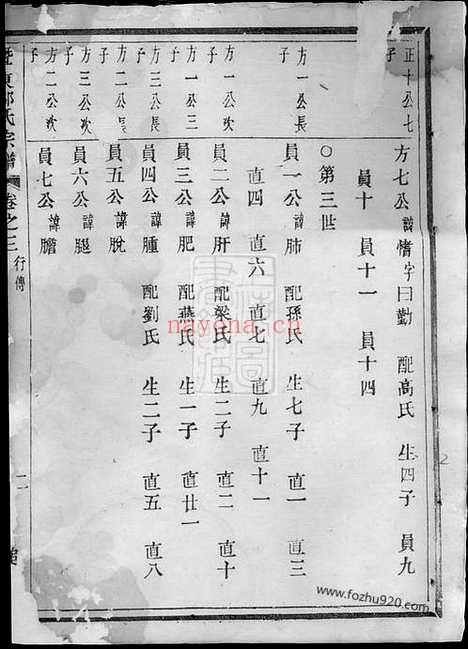 正十公七
子
方七公 諱愭 字曰勤 配高氏 生四子 員九
員十 員十一 員十四
○第三世
方一公長
子
員一公 諱肺 配孫氏 生七子 直一 直三
直四 直六 直七 直九 直十一
方一公次
子
員二公 諱肝 配梁氏 生二子 直二 直十
方一公三
子
員三公 諱肥 配燕氏 生一子 直廿一
方三公長
子
員四公 諱腫 配劉氏 生二子 直五 直八
方二公長
子
員五公 諱脫
方三公次
子
員六公 諱腿
方二公次
子
員七公 諱膽
東 氏宗譜 卷之三 行傳
nayona.cn
www.fozhu920.com